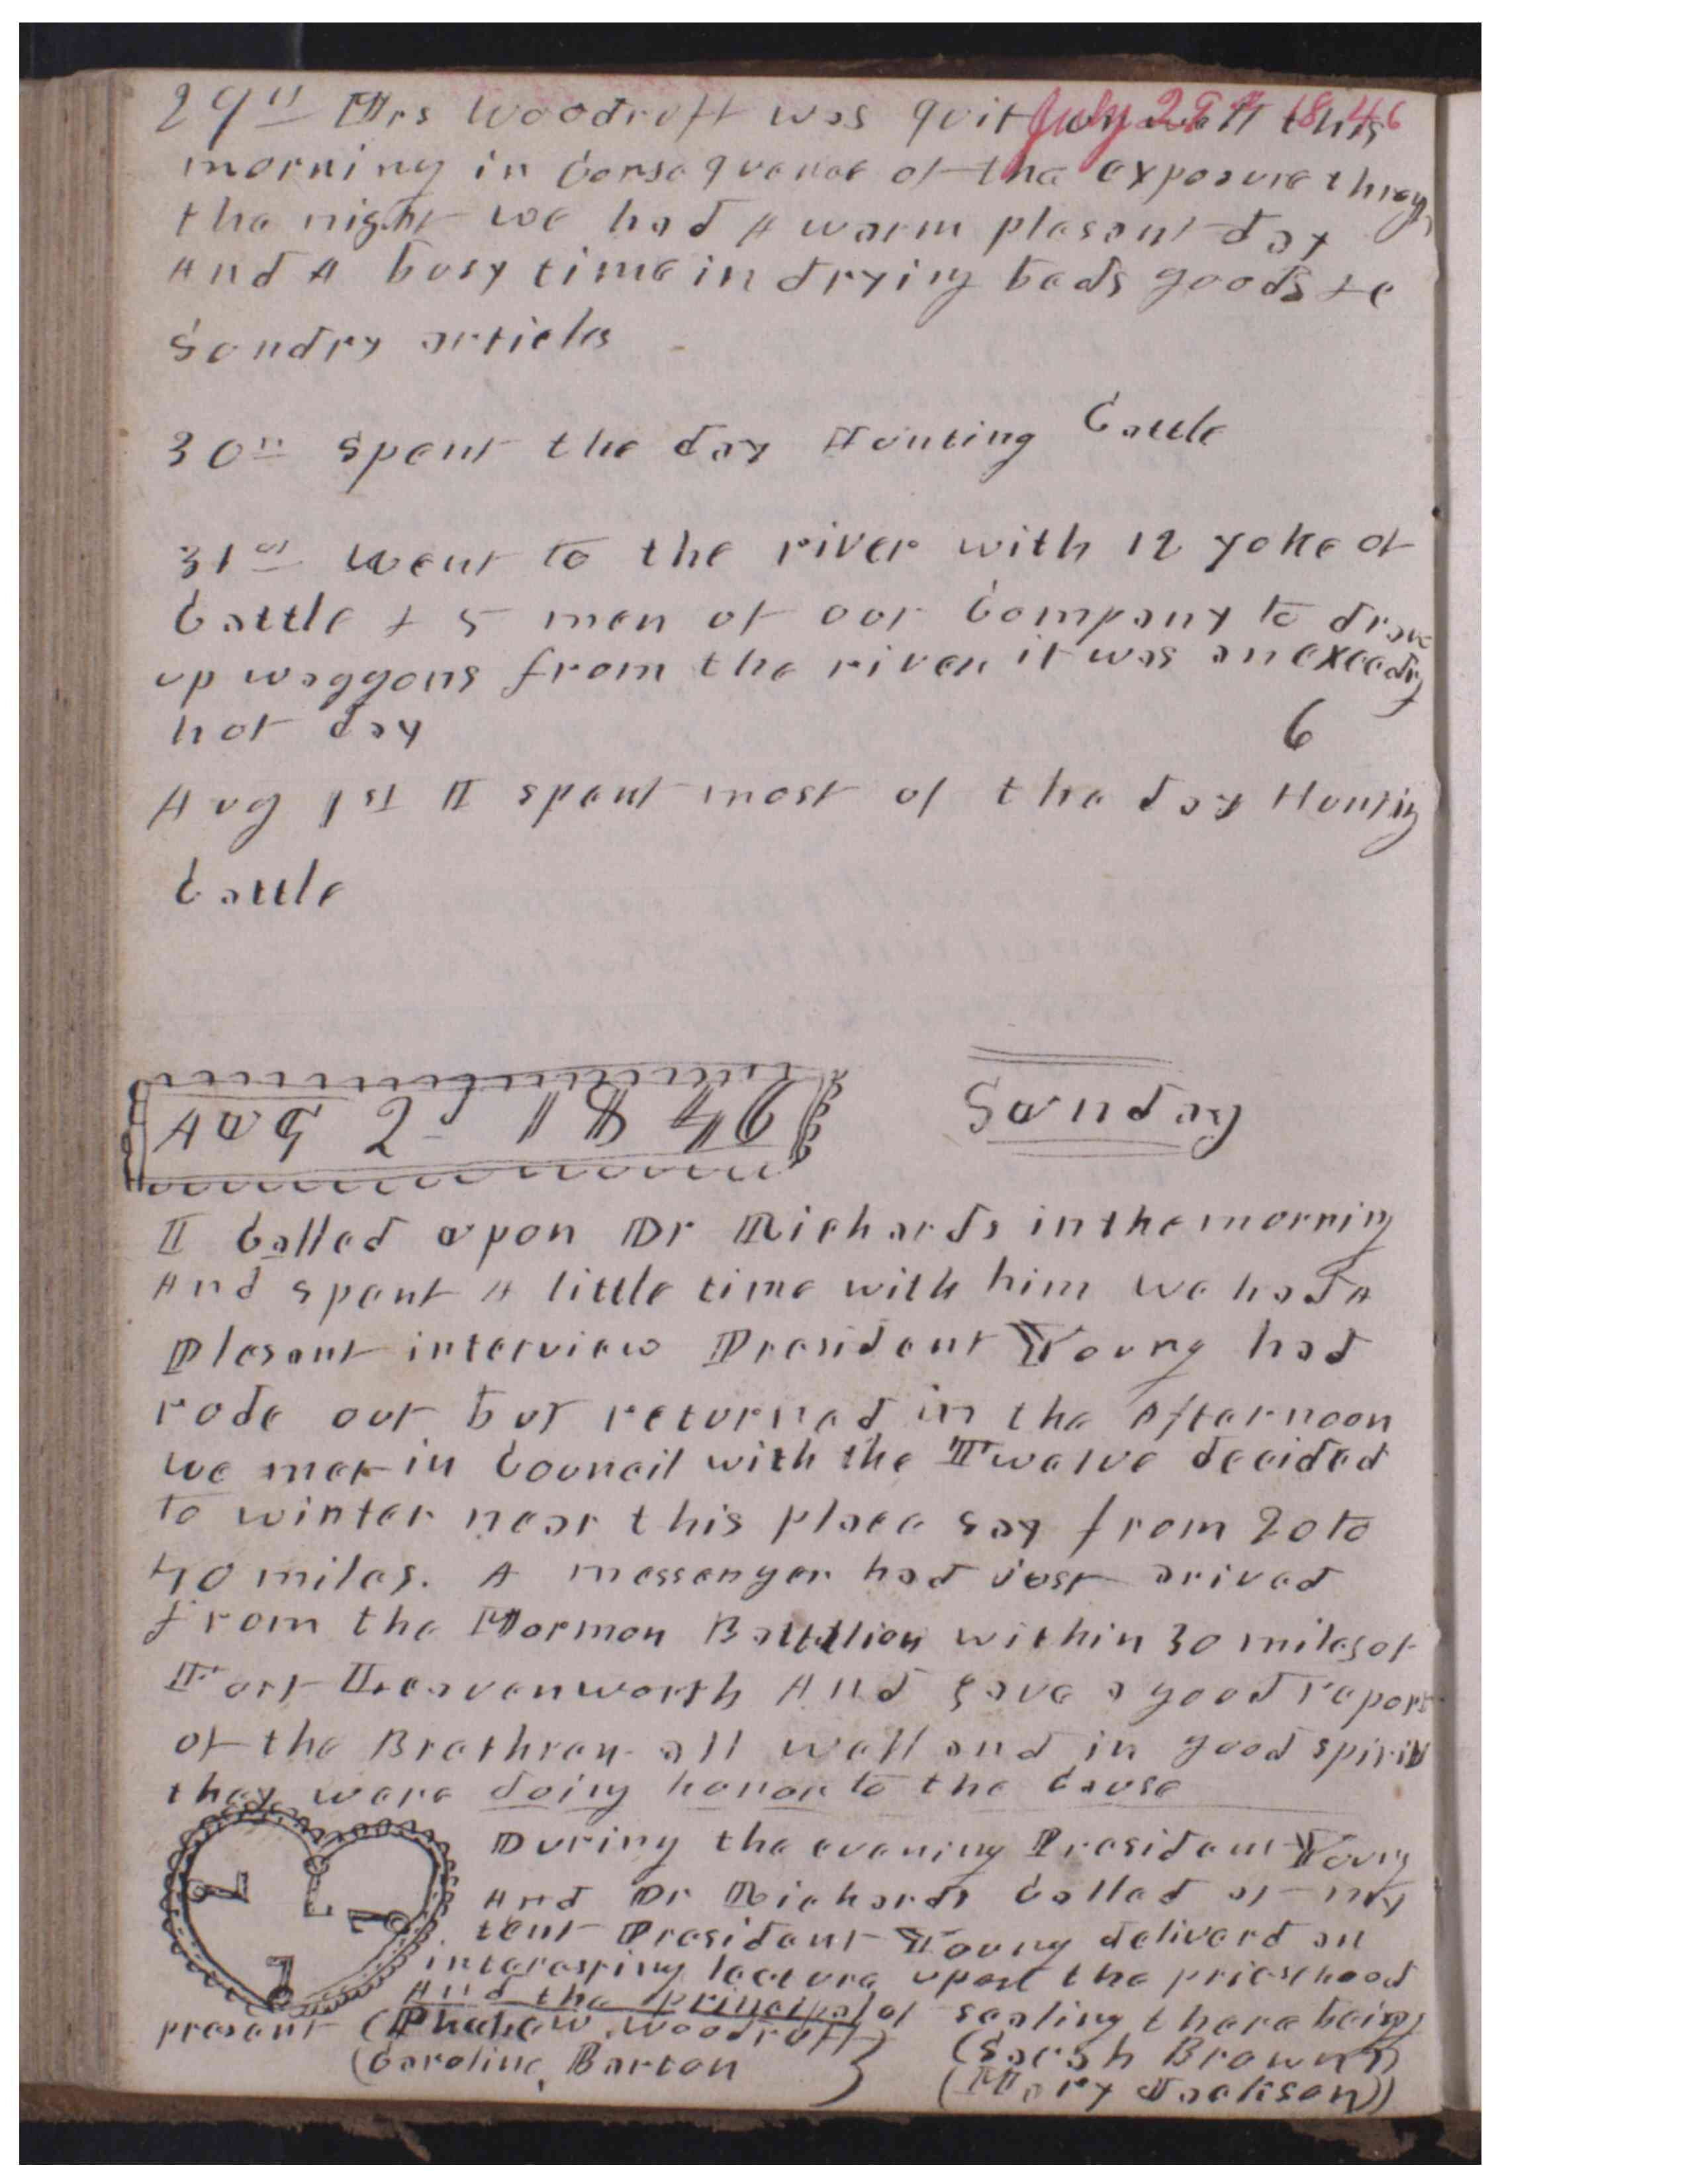 July 29th 1846
29th Mrs Woodruff was quite unwell this
morning in Consequence of the exposure through
the night we had A warm plesant day
And A busy time in drying beds goods &c
Sundry articles
30th Spent the day Hunting Cattle
31st Went to the river with 12 yoke of
Cattle & 5 men of our Company to drave
up waggons from the river it was an exceedig
hot day
6
Aug 1st I spent most of the day Huntig
Cattle
Aug 2 1846
Sunday
I Called upon Dr Richards in the morning
And spent A little time with him we had A
Plesant interview President Young had
rode out but returned in the Afternoon
we met in Council with the Twelve decided
to winter near this place say from 20 to
40 miles. A messenger had just arived
from the Mormon Battalion within 30 miles of
Fort Leavenworth And gave a good report
of the Brethren all well and in good spirits
they were doing honor to the Cause
During the evening President Young
And Dr Richards Called at my
tent President Young deliverd an
interesting lecture upon the priesthood
And the principal of sealing there being
present (Phebe W. Woodruff) (Sarah Brown)
(Caroline Barton (Mary Jackson))